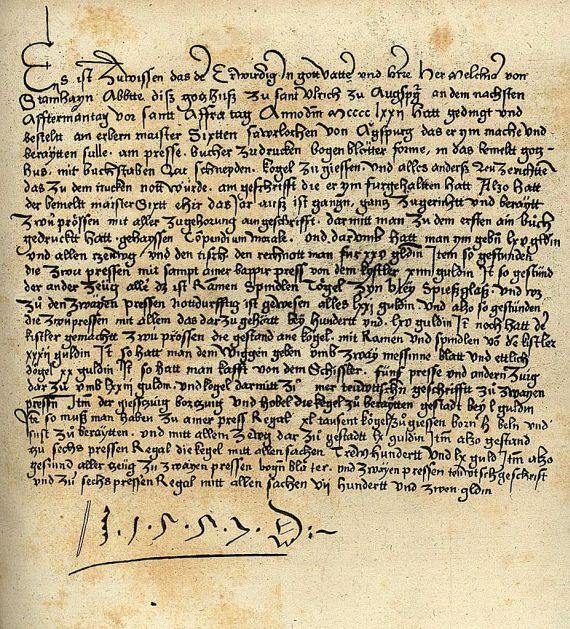 Es ist Zuwissen das de Erwirdig In gott vatter und herre Her Melchior von
Stamhayn Abbte diß gotzhuß zu sant Ulrich zu Augspurg an dem nachsten
Afftermäntag vor sant Affra tag Annodm Mcccc lxxii Hatt gedingt und
bestelt am erbern maister Sixtten saurlochen von Augspurg das er ym mache und
beraytten sulle am presse bucher zudrucken bogen bletter forme, in das bemelt gotz=
hus, mit buchstaben schneyden kögel zu giessen und alles anders zerichtten
das zu dem trucken nott wurde. am geschrifft die er ym furgehaltten hatt Alzo hatt
der bemelt maister Sixtt eher das Jar auß ist gangn, gantz zugericht und beraytt
zwu prössen mit aller zugehorung am geschrifft. dar mitt man zu dem ersten ain buch
gedruckt hatt gehayssen Cōpendium morale. und darumb hatt man ym gebn lxv gldin
und allen zeug, und den tisch den rechnott man fur xxv gldin Item so gestunden
die zwu pressen mit sampt ainer bappir press von dem kystler xiiii guldin It so gestund
der ander zeug alle dz ist Ramen Spindlen Tögel zyn bley Spießglaß und wz
zu den zwayen pressen nottdurfftig ist gewesen alles lxxi guldin und alzo so gestunden
die zwu pressen mit allem das dar zu gehött bey hundertt und lxv guldin It noch hatt de
kistler gemachtt zwu prössen die gestand ane kögel mit Ramen und spindlen vo de kistler
xxxii guldin It so hatt man dem Wiggen geben umb zway messinne blatt und ettlich
dögel xx guldin It so hatt man kaufft von dem Schissler fünf presse und andern zuig
dar zu umb lxxiii guldin und kögel darmitt zu mer teuttschn geschrifft zu zwayen
pressn Itm der giesszuig borzuig und hobel die kögel zu beraytten gestadt bey l guldin
It so muß man haben zu ainer press Regal xl tausent kögel zu giessen
und zu beraytten und mitt allem zewg dar zu gestadt lx guldin Itm alzo gestand
zu sechs pressen Regal die kegel mitt allen sachen Trew hundertt und lx guld Itm alzo
gestund aller zeug zu zwayen pressen bogn bletter und zwayen pressen teuttsch geschrift
und zu sechs pressen Regal mitt allen sachen vii hundertt und zwen gldin
1·5·5·2·